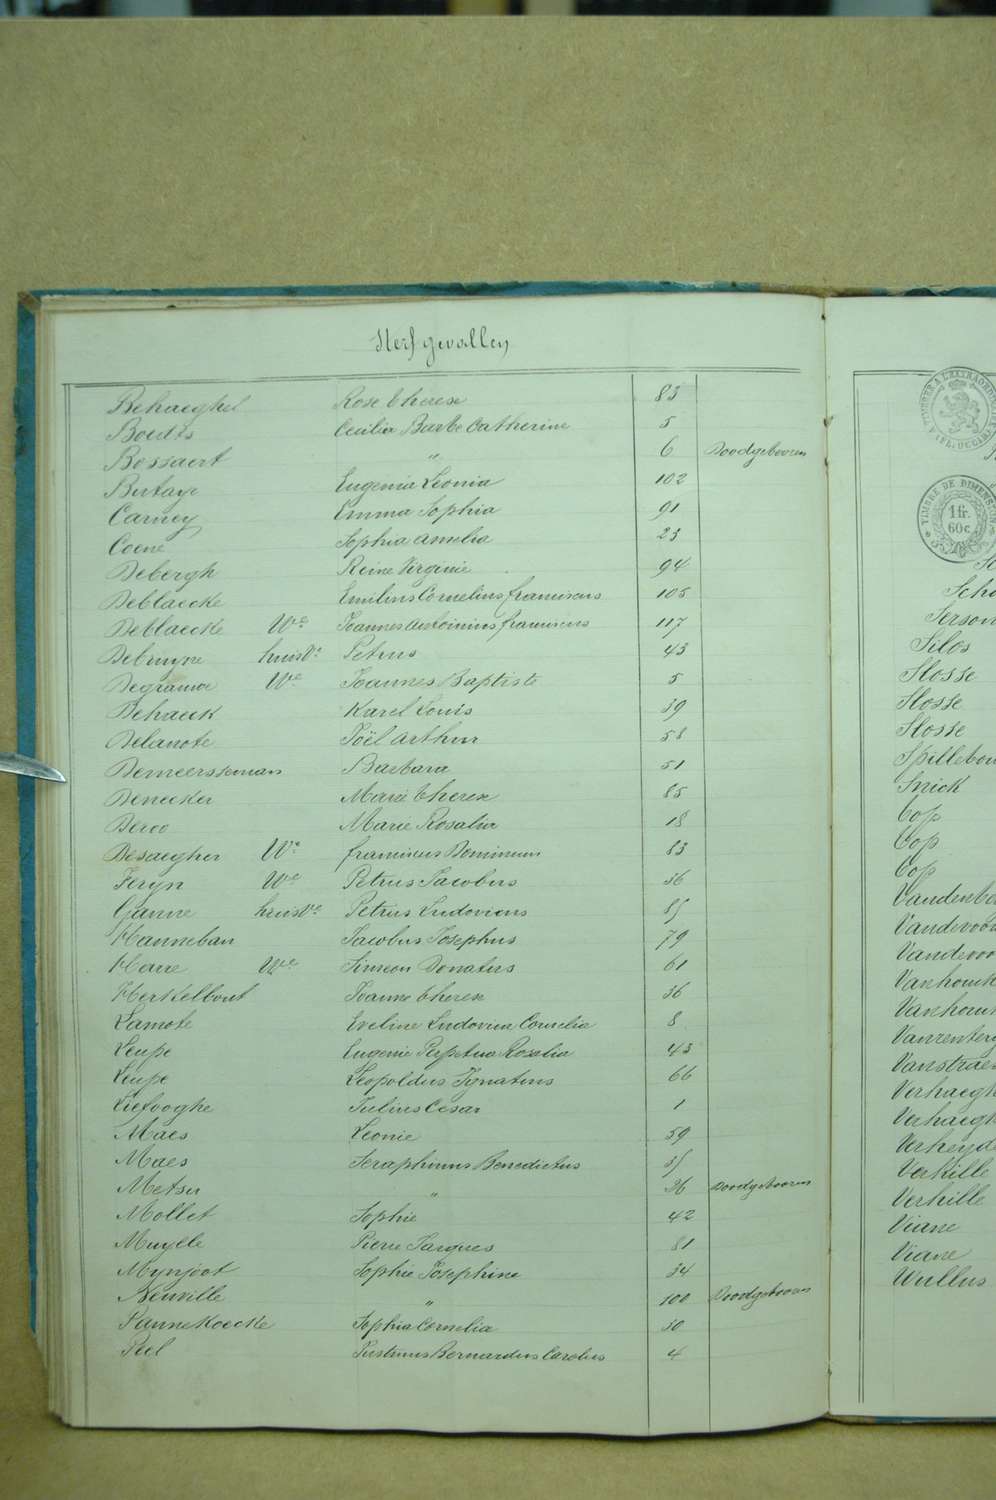 Sterfgevallen
Behaeghel Rose Therese 83
Boudts Cecilia Barbe Catherine 5
Bossaert " 6 Doodgeboren
Butaye Eugenia Leonia 102
Carney Emma Sophia 91
Coene Sophia Amelia 23
Debergh Reine Virginie 94
Deblaecke Emilius Cornelius franciscus 105
Deblaecke We Joannes Antoinius franciscus 117
Debruyne huisve Petrus 43
Degrande We Joannes Baptiste 5
Dehaeck Karel Louis 39
Delanote Joël Arthur 58
Demeersseman Barbara 51
Denecker Marie Therese 85
Deroo Marie Rosalia 18
Desaegher We franciscus 83
Feryn We Petrus Jacobus 56
Ganne huisve Petrus Ludovicus 85
Hanneban Jacobus Josephus 79
Haire We Simeon Donatus 61
Herkelbout Joanne Therese 36
Lamote Eveline Ludovica Cornelia 8
Leupe Eugenie Perpetua Rosalia 43
Leupe Leopoldus Ignatius 66
Liefooghe Julius Cesar 1
Maes Leonie 59
Maes Seraphinus Benedictus 35
Metsu " 26 Doodgeboren
Mollet Sophie 42
Muylle Pierre Jacques 81
Mynjoot Sophie Josephine 34
Neuville " 100 Doodgeboren
Pannekoecke Sophia Cornelia 30
Peel Bernardus Carolus 4
TIMBRE DE DIMENSION
1 fr.
60c
Serson
Silos
Slosse
Slosse
Slosse
Spillebou
Snick
Top
Top
Top
Vandenbe
Vandevoo
Vandevoo
Vanhouck
Vanhouck
Vanrenterg
Vanstrae
Verhaegh
Verhaegh
Verheyde
Verhille
Verhille
Viane
Viane
Wullus